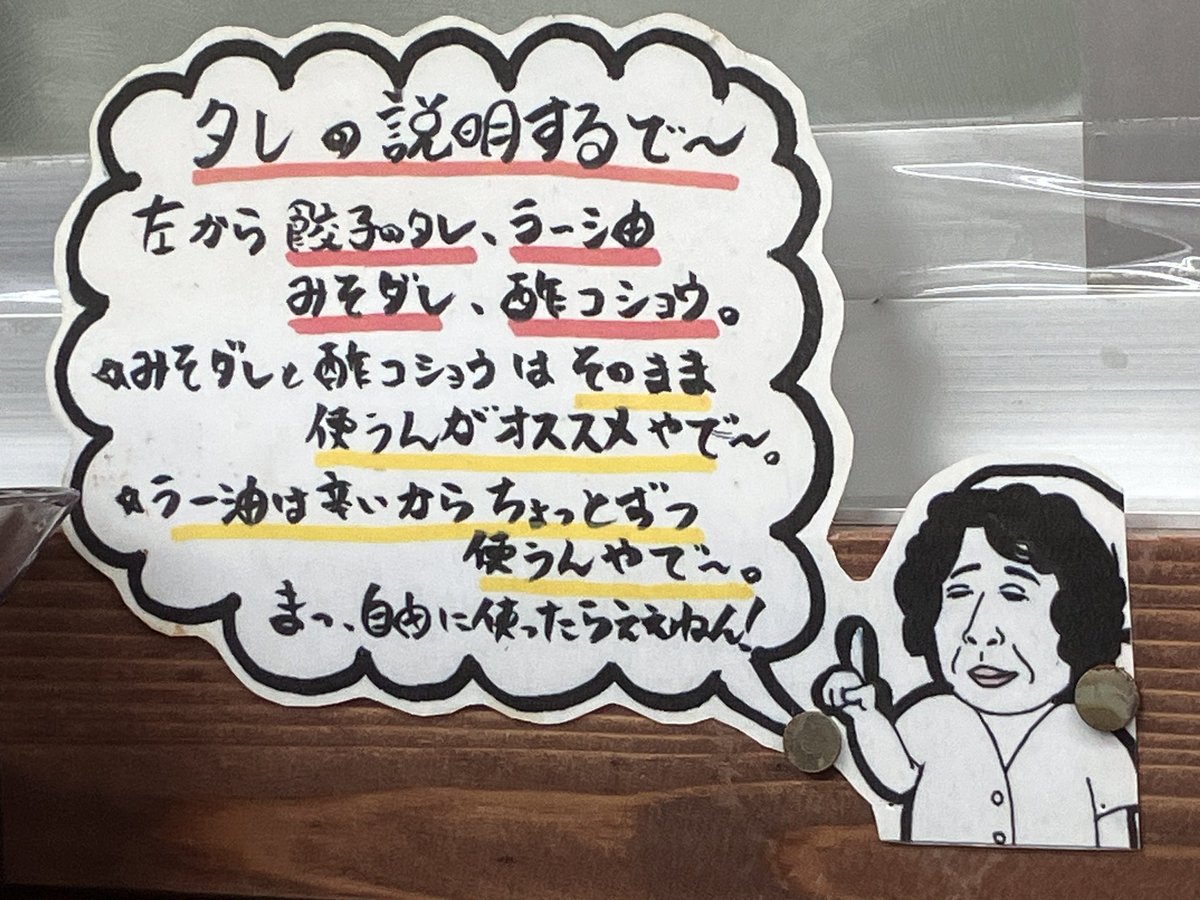 タレの説明するで〜
左から餃子のタレ、ラー油
みそダレ、酢コショウ。
☆みそダレと酢コショウはそのまま
使うんがオススメやで〜。
☆ラー油は辛いからちょっとずつ
使うんやで〜。
まっ、自由に使ったらええねん!